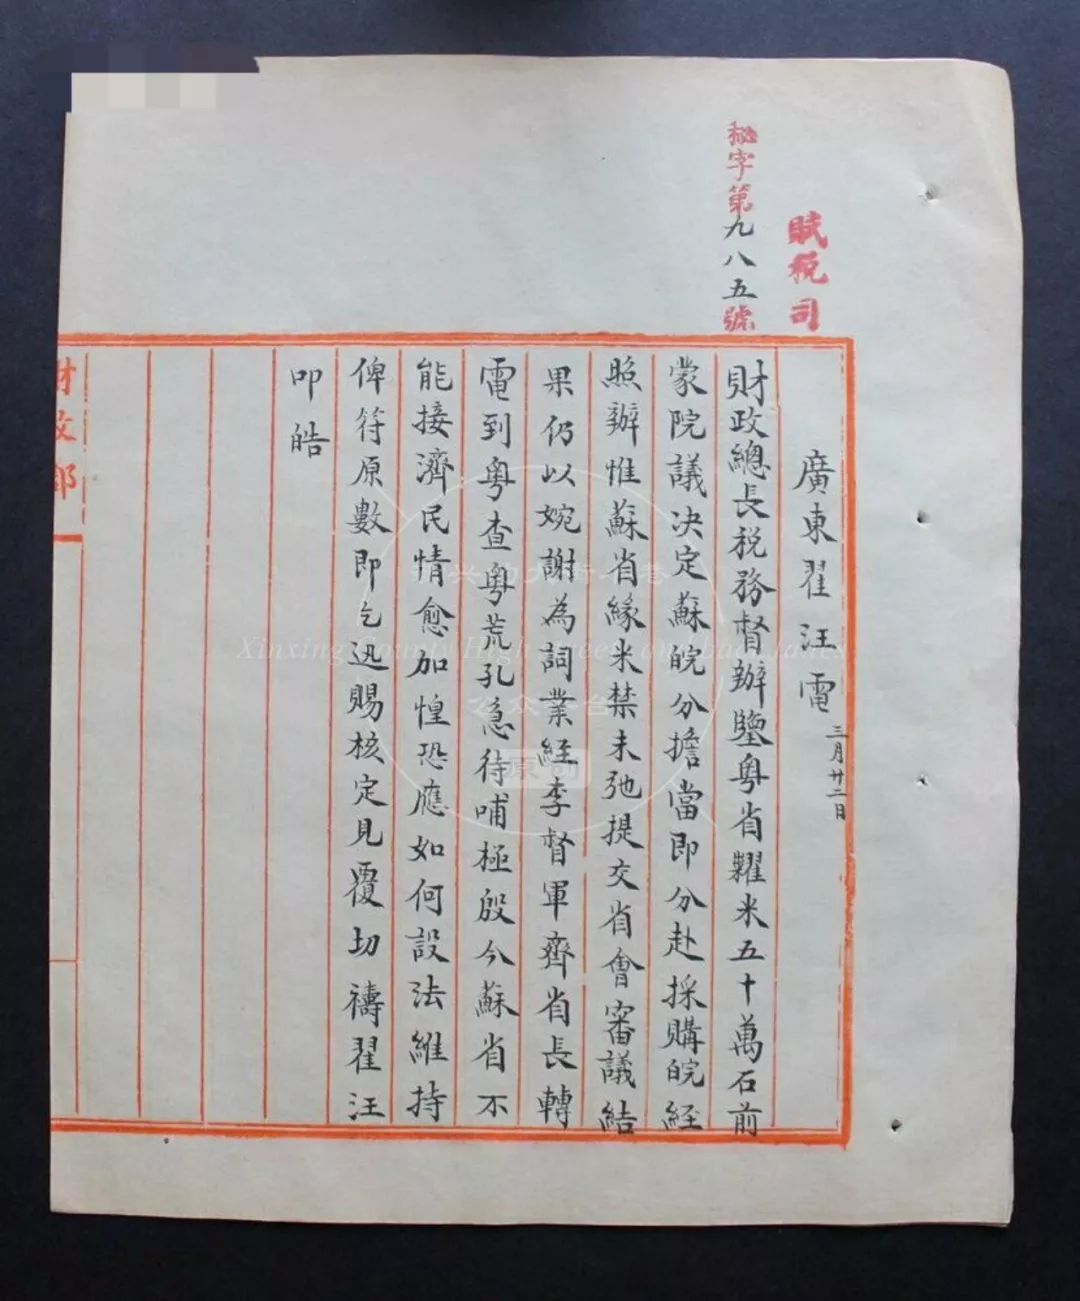 賦稅司
秘字第九八五號
廣東翟汪電 三月廿二日
財政總長税務督辦鑒粵省糴米五十萬石前
蒙院議決定蘇皖分擔當即分赴採購皖經
照辦惟蘇省緣米禁未弛提交省會審議結
果仍以婉謝為詞業經李督軍齊省長轉
電到粵查粵荒孔急待哺極殷今蘇省不
能接濟民情愈加惶恐應如何設法維持
俾符原數即乞迅賜核定見覆切禱翟汪
叩皓
財政部
Xinxing County High Streets and Back Lanes
公众平台
原创